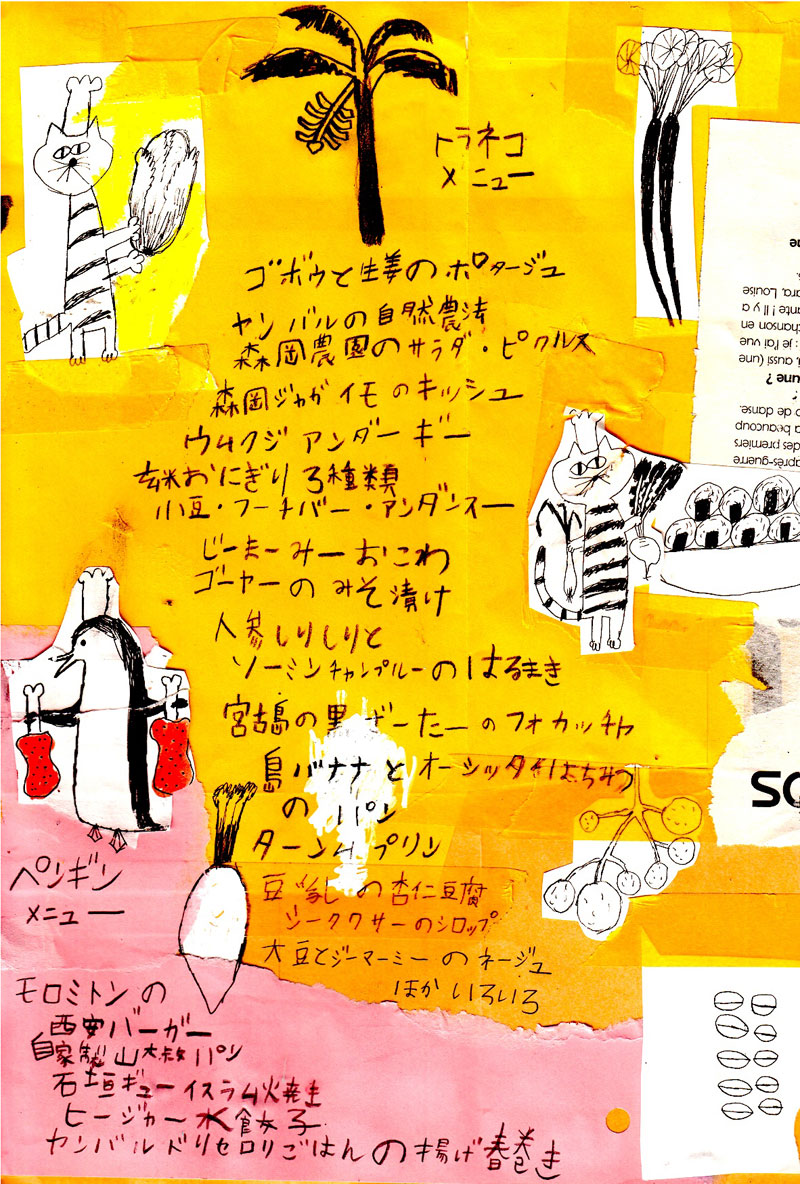 トラネコ
メニュー
ゴボウと生姜のポタージュ
ヤンバルの自然農法
森岡農園のサラダ・ピクルス
森岡ジャガイモのキッシュ
ウムクジアンダーギー
玄米おにぎり3種類
小豆・フーチバー・アンダンスー
じーまーみーおこわ
ゴーヤーのみそ漬け
人参しりしりと
ソーミンチャンプルーのはるまき
宮古島の黒ざーたーのフォカッチャ
島バナナとオーシッタイはちみつ
のパン
ターンムプリン
豆乳の杏仁豆腐
シークワサーのシロップ
大豆とジーマーミーのネージュ
ほかいろいろ
ペンギン
メニュー
モロミトンの
西安バーガー
自家製山大叔パン
石垣ギューイスラム火発き
ヒージャー水餃子
ヤンバルドリセロリごはんの揚げ春巻き
ne
ara. Louise
ante ! Il y a
chanson en
: je l'ai vue
, aussi (une
une ?
?
o de danse.
a beaucoup
des premiers
après-guerre
SO